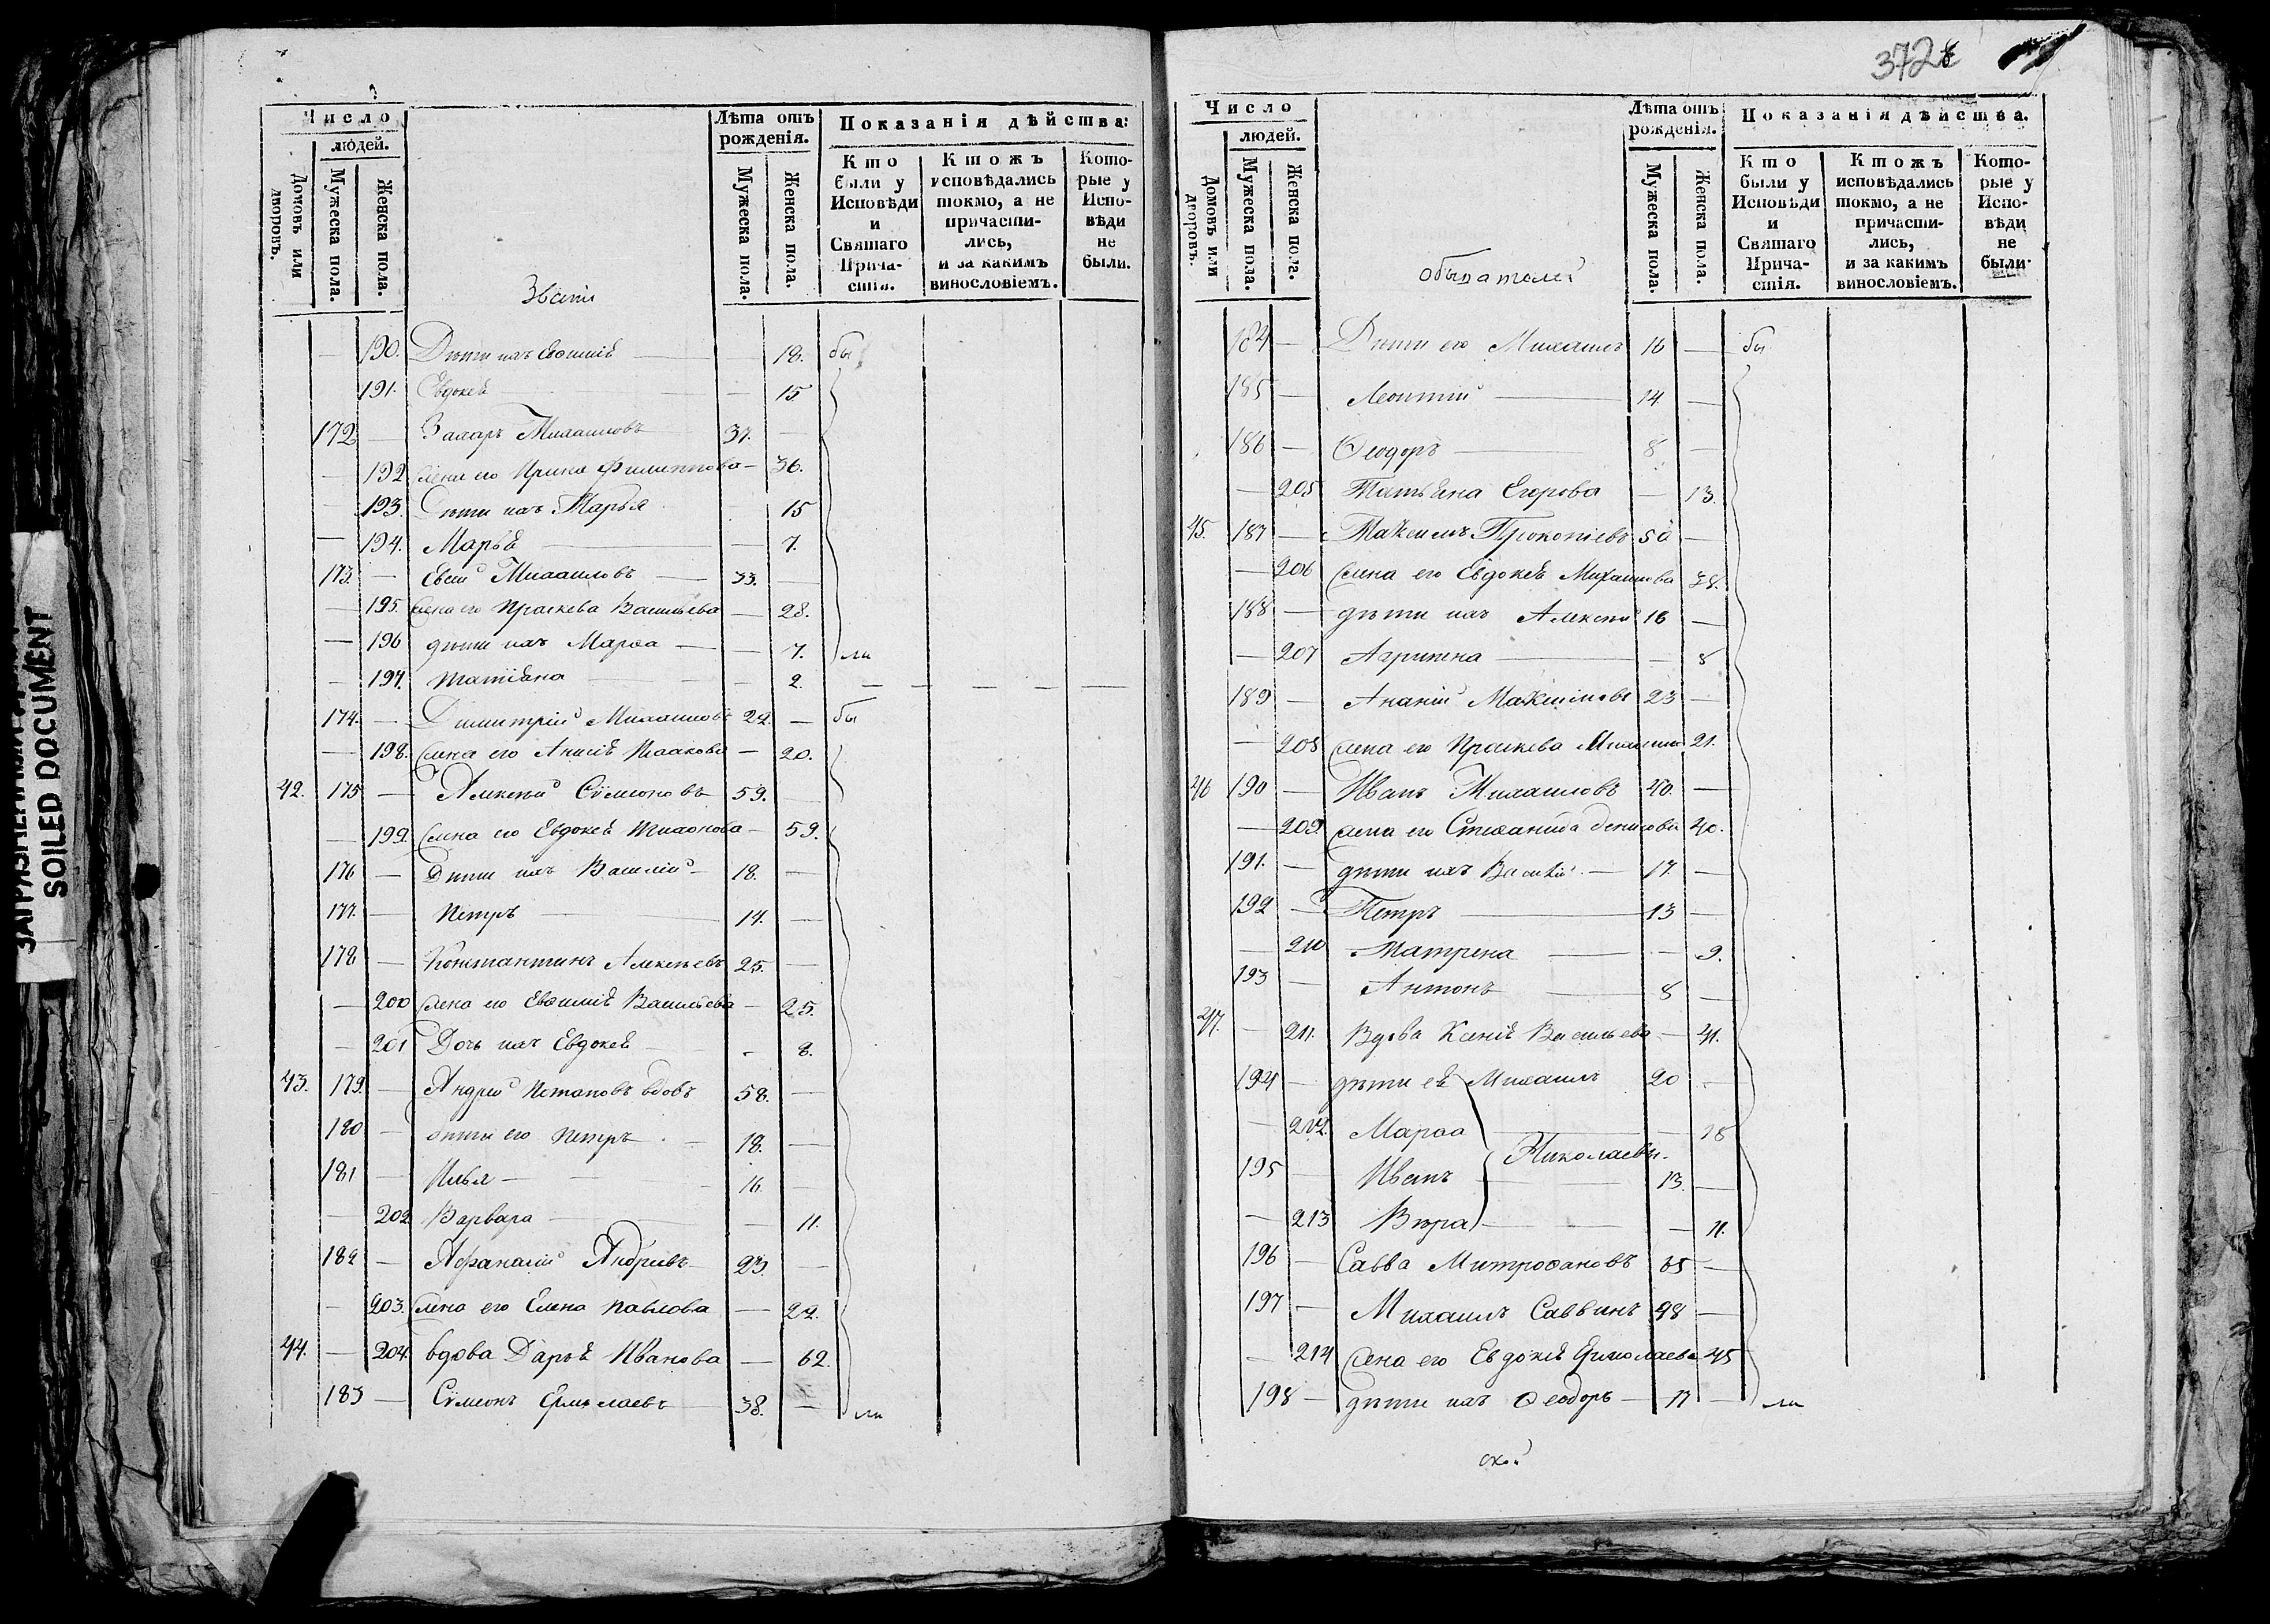 372
ЗАГРЯЗНЕННЫЙ ДОКУМЕНТ
SOILED DOCUMENT
Число
людей.
Домовъ или дворовъ.
Мужеска пола.
Женска пола.
Званія
Лѣта отъ рожденія.
Мужеска пола.
Женска пола.
Показанія дѣйства:
Кто были у Исповѣди и Святаго Прича-стія.
Ктожъ исповѣдались токмо, а не причасти-лись, и за какимъ винословіемъ.
Кото-рые у Испо-вѣди не были.
— 190. Дѣти ихъ Евѳимія — 18. бы
— 191. Евдокея — 15.
172 — Захаръ Михаиловъ 37. —
— 192 Жена его Ирина Филиппова — 36.
— 193. Дѣти ихъ Марья — 15
— 194. Марья — 7.
173. — Евсей Михаиловъ — 33. —
— 195. Жена его Праскева Васильева — 28.
— 196 дѣти ихъ Марѳа — 7. ли
— 197. Татіана — 2. — — — — —
174. — Димитрій Михаиловъ 22. — бы
— 198. Жена его Анисія Исаакова — 20.
42. 175 — Алексѣй Сѵмеоновъ 59. —
— 199. Жена его Евдокея Тихонова — 59.
176 — Дѣти ихъ Василій — 18. —
177. — Петръ — 14. —
178 — Константинъ Алексѣевъ 25. —
— 200 Жена его Евѳимія Васильева — 25.
— 201 Дочь ихъ Евдокея — 8.
43. 179. — Андрей Потаповъ вдовъ 58. —
180 — дѣти его Петръ — 18. —
181 — Илья — 16 —
— 202 Варвара — 11.
182 — Аѳанасій Андреевъ 23. —
— 203. Жена его Елена Павлова — 22.
44. — 204. вдова Дарья Иванова — 62.
183 — Сѵмеонъ Ермолаевъ 38. — ли
Число
людей.
Домовъ или дворовъ.
Мужеска пола.
Женска пола.
обывателей
Лѣта отъ рожденія.
Мужеска пола.
Женска пола.
Показанія дѣйства.
Кто были у Исповѣди и Святаго Прича-стія.
Ктожъ исповѣдались токмо, а не причасти-лись, и за какимъ винословіемъ.
Кото-рые у Испо-вѣди не были.
184 — Дѣти его Михаилъ 16 — бы
185 — Леонтій — 14 —
186 — Ѳеодоръ — 8 —
— 205 Татьяна Егорова — 13.
45. 187 — Максимъ Прокопіевъ 50 —
— 206 Жена его Евдокея Михаилова 38.
188 — дѣти ихъ Алексѣй 16 —
— 207 Агрипена — 8
189 — Ананій Максимовъ 23 —
— 208 Жена его Праскева 21.
46 190 — Иванъ Михаиловъ 40. —
— 209. Жена его Стеѳанида Денисова 40.
191. — дѣти ихъ Василій — 17. —
192 — Петръ — 13 —
— 210 Матрена — 9.
193 — Антонъ — 8 —
47. — 211. Вдова Ксенія Васильева — 41.
194 — дѣти ея Михаилъ 20 —
— 212. Марѳа — 18
Николаевы.
195 — Иванъ — 13. —
— 213 Вѣра — 11.
196 — Савва Митроѳановъ —
197 — Михаилъ Саввинъ 48 —
— 214 Жена его Евдокея Ермолаева 45
198 — дѣти ихъ Ѳеодоръ — 17 — ли
ской